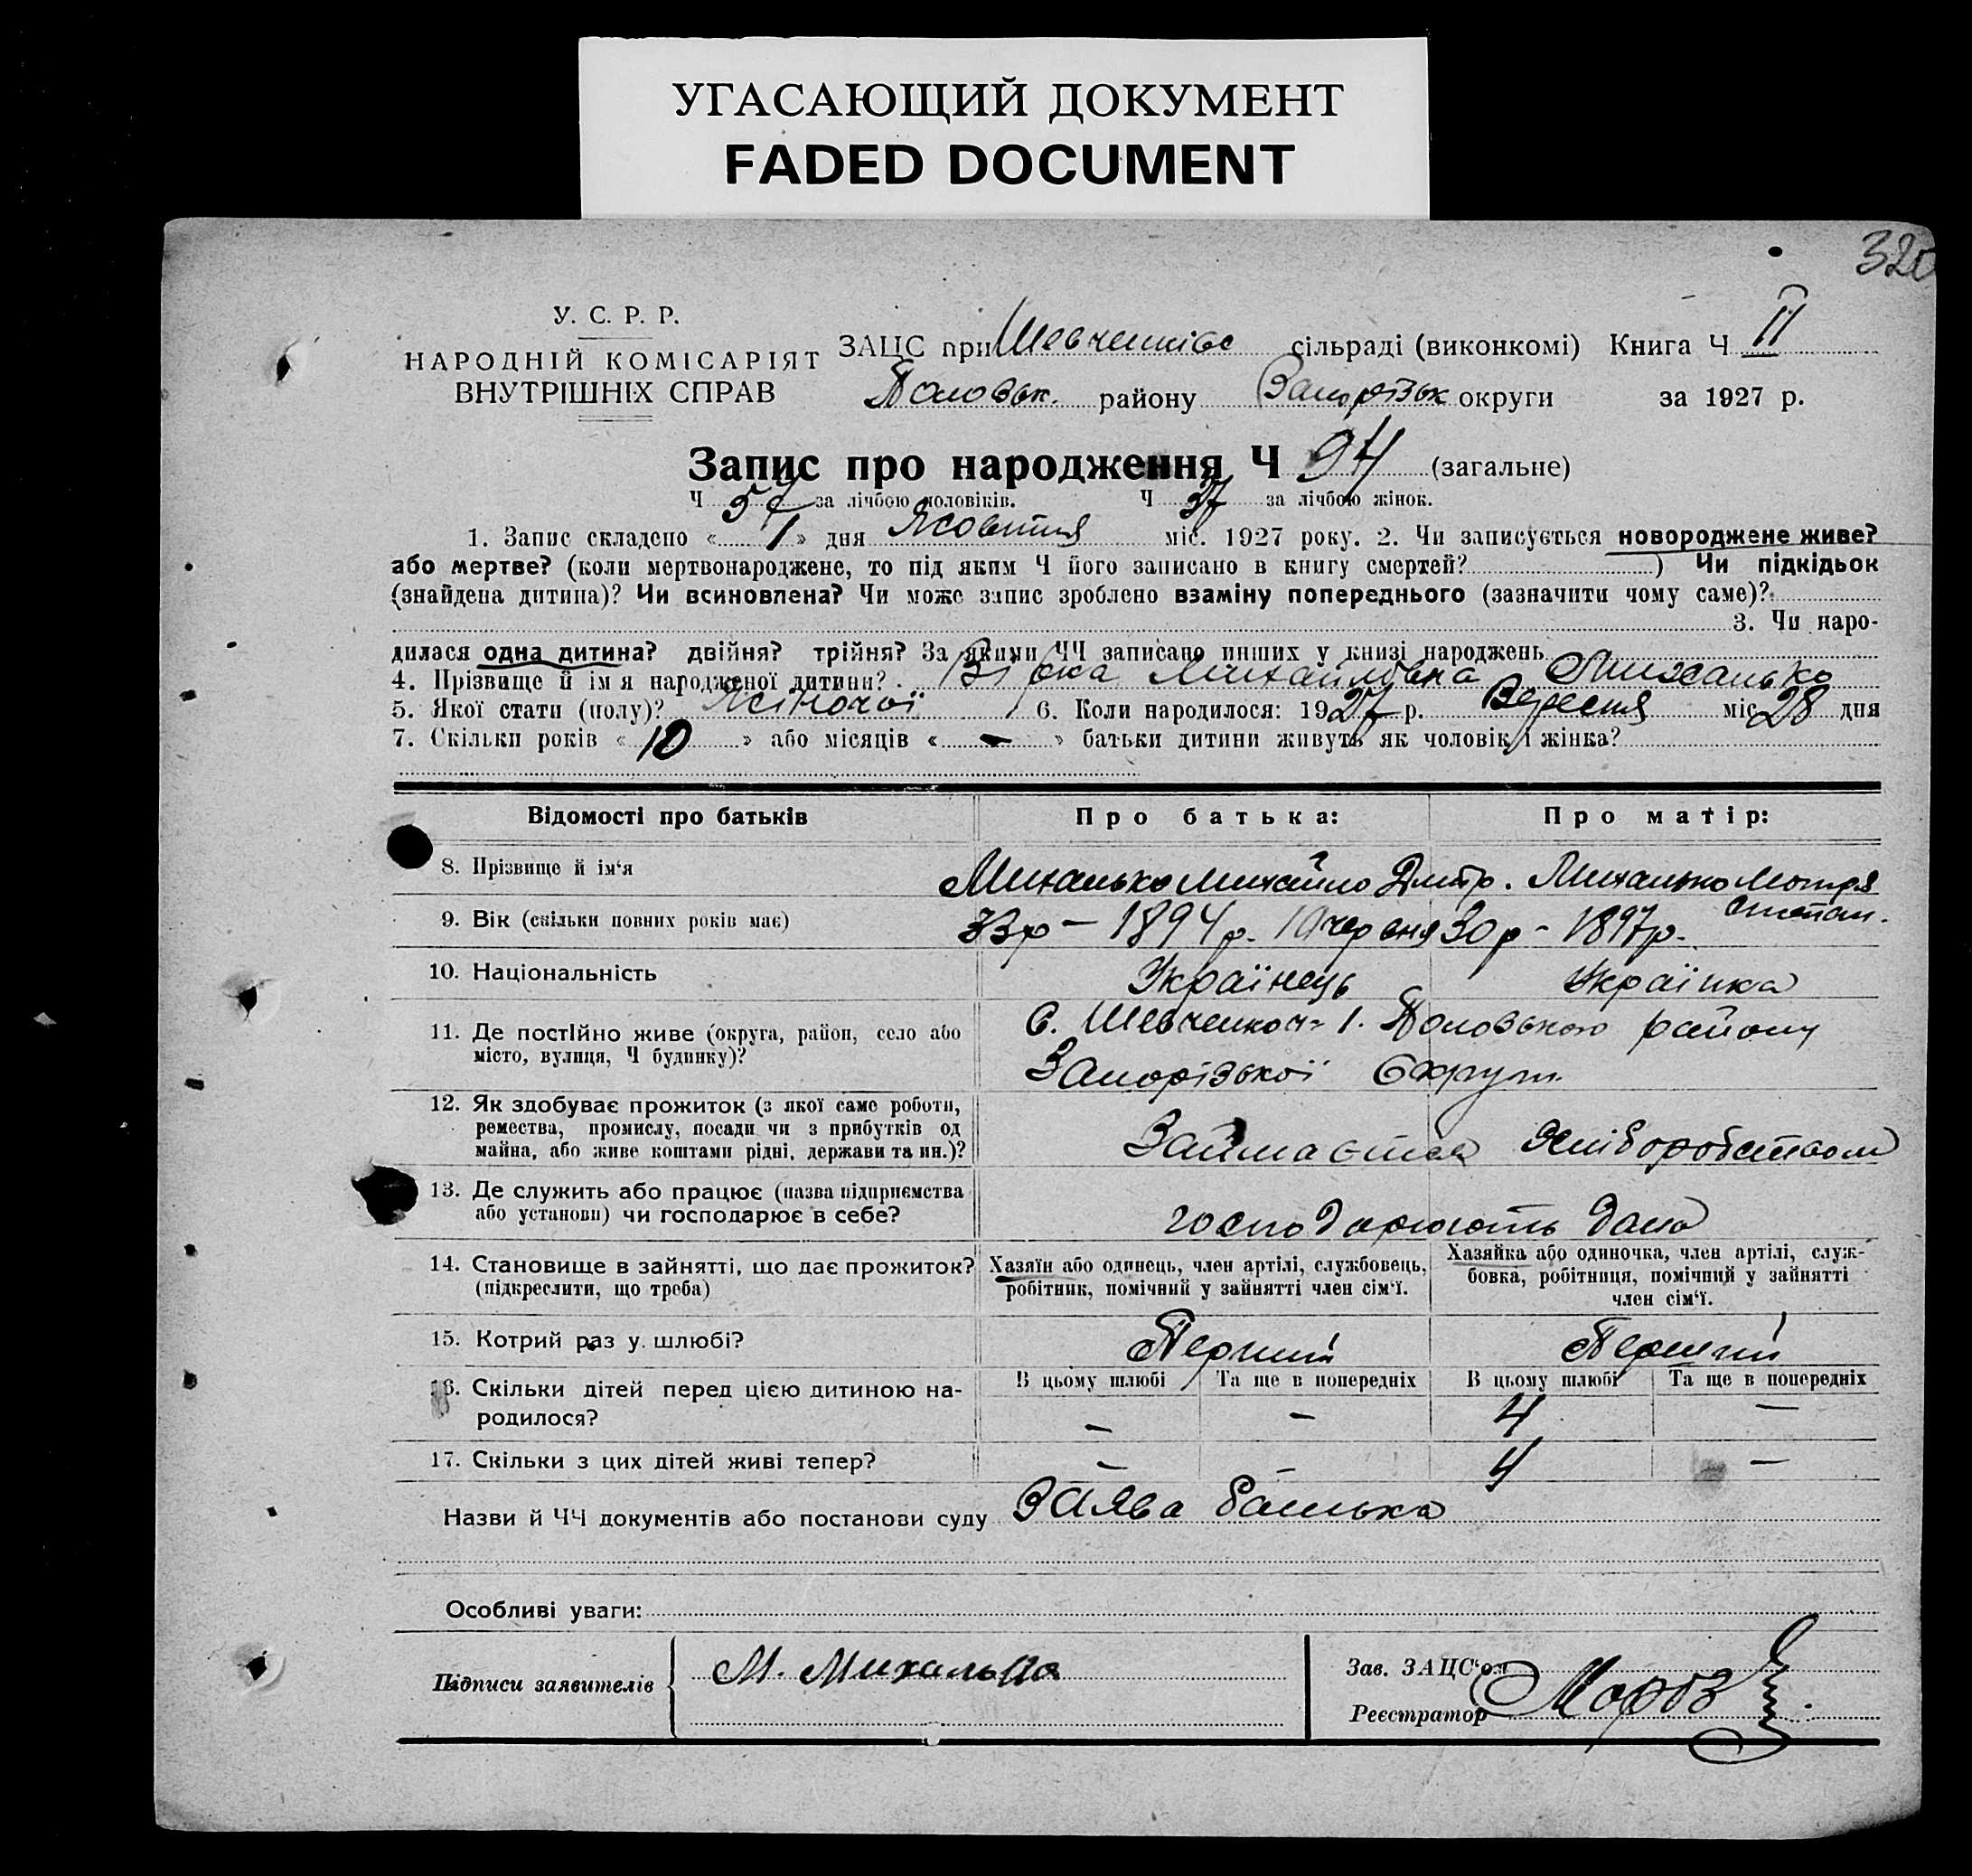 УГАСАЮЩИЙ ДОКУМЕНТ
FADED DOCUMENT
320
У. С. Р. Р.
НАРОДНІЙ КОМІСАРІЯТ
ВНУТРІШНІХ СПРАВ
ЗАЦС при Шевченківс сільраді (виконкомі) Книга Ч II
району Запорізьк округи за 1927 р.
Запис про народження Ч 94 (загальне)
Ч 57 за лічбою чоловіків. Ч 37 за лічбою жінок.
1. Запис складено « 1 » дня Жовтня міс. 1927 року. 2. Чи записується новороджене живе?
або мертве? (коли мертвонароджене, то під яким Ч його записано в книгу смертей? ) Чи підкідьок
(знайдена дитина)? Чи всиновлена? Чи може запис зроблено взаміну попереднього (зазначити чому саме)?
3. Чи наро-
дилася одна дитина? двійня? трійня? За якими ЧЧ записано инших у книзі народжень
4. Прізвище й ім я народженої дитини? Вірка Михайлівна Михалько
5. Якої стати (полу)? Жіночої 6. Коли народилося: 1927 р. Вересня міс 28 дня
7. Скільки років « 10 » або місяців « - » батьки дитини живуть як чоловік і жінка?
Відомості про батьків Про батька: Про матір:
8. Прізвище й ім'я Михалько Михайло Дмитр. Михалько Мотря
Степан.
9. Вік (скільки повних років має) 33 р - 1894 р. 10 червня 30 р - 1897 р.
10. Національність Українець Українка
11. Де постійно живе (округа, район, село або
місто, вулиця, Ч будинку)?
С. Шевченкон- 1. району
Запорізької Округи
12. Як здобуває прожиток (з якої саме роботи,
ремества, промислу, посади чи з прибутків од
майна, або живе коштами рідні, держави та ин.)?
Займаєтся Хліборобством
13. Де служить або працює (назва підприємства
або установи) чи господарює в себе?
господарюють дома
14. Становище в зайнятті, що дає прожиток?
(підкреслити, що треба)
Хазяїн або одинець, член артілі, службовець,
робітник, помічний у зайнятті член сім'ї.
Хазяйка або одиночка, член артілі, служ-
бовка, робітниця, помічний у зайнятті
член сім'ї.
15. Котрий раз у шлюбі? Перший Перший
16. Скільки дітей перед цією дитиною на-
родилося?
В цьому шлюбі Та ще в попередніх В цьому шлюбі Та ще в попередніх
- - 4 -
17. Скільки з цих дітей живі тепер? - - 4 -
Назви й ЧЧ документів або постанови суду Заява батька
Особливі уваги:
Підписи заявителів М. Михалько
Зав. ЗАЦС'ом
Реєстратор Мороз